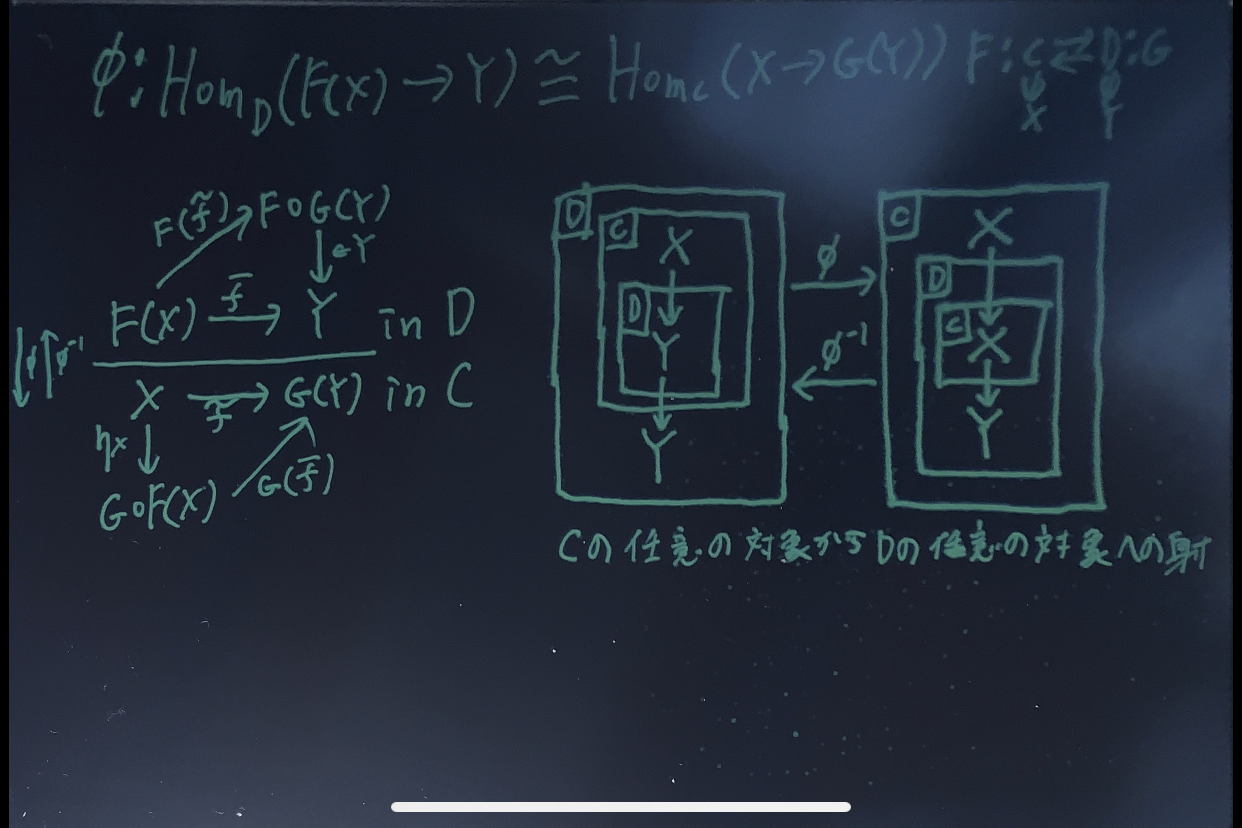 φ: Hom_D(F(X)→Y) ≅ Hom_C(X→G(Y)) F:C⇄D:G
X Y
F(f̃) F∘G(Y)
εY
F(X) f̄ Y in D
φ φ⁻¹
X f̃ G(Y) in C
ηx
G∘F(X) G(f̄)
D C X
D Y
Y
φ
φ⁻¹
C X
D
C X
Y
Cの任意の対象からDの任意の対象への射